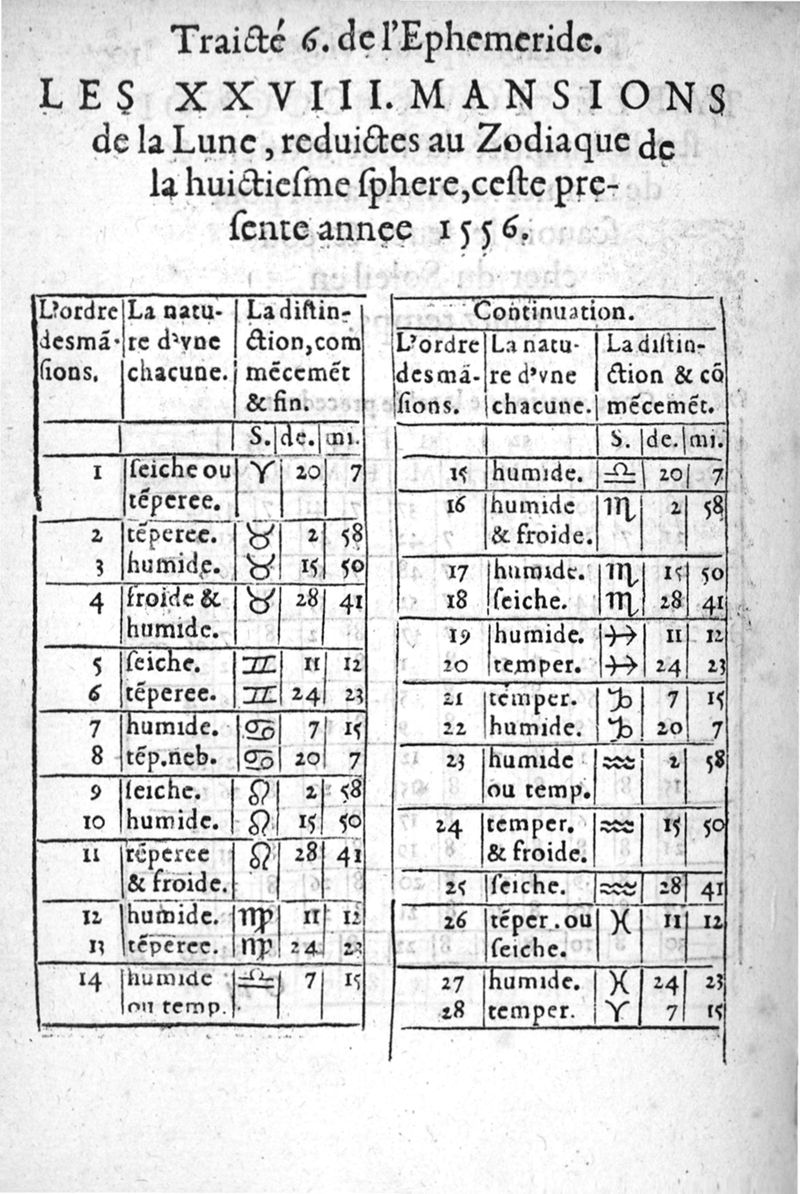 Traicté 6. de l'Ephemeride.
LES XXVIII. MANSIONS
de la Lune, reduictes au Zodiaque de
la huictieſme ſphere, ceſte pre-
ſente annee 1556.
L'ordre La natu- La diſtin-
desmā- re d'vne ction, com
ſions. chacune. mēcemēt
& fin.
S. de. mi.
1 ſeiche ou ♈ 20 7
tēperee.
2 tēperee. ♉ 2 58
3 humide. ♉ 15 50
4 froide & ♉ 28 41
humide.
5 ſeiche. ♊ 11 12
6 tēperee. ♊ 24 23
7 humide. ♋ 7 15
8 tēp.neb. ♋ 20 7
9 ſeiche. ♌ 2 58
10 humide. ♌ 15 50
11 tēperee ♌ 28 41
& froide.
12 humide. ♍ 11 12
13 tēperee. ♍ 24 23
14 humide ♎ 7 15
ou temp.
Continuation.
L'ordre La natu- La diſtin-
desmā- re d'vne ction & cō
ſions. chacune. mēcemēt.
S. de. mi.
15 humide. ♎ 20 7
16 humide ♏ 2 58
& froide.
17 humide. ♏ 15 50
18 ſeiche. ♏ 28 41
19 humide. ♐ 11 12
20 temper. ♐ 24 23
21 temper. ♑ 7 15
22 humide. ♑ 20 7
23 humide ♒ 2 58
ou temp.
24 temper. ♒ 15 50
& froide.
25 ſeiche. ♒ 28 41
26 tēper. ou ♓ 11 12
ſeiche.
27 humide. ♓ 24 23
28 temper. ♈ 7 15